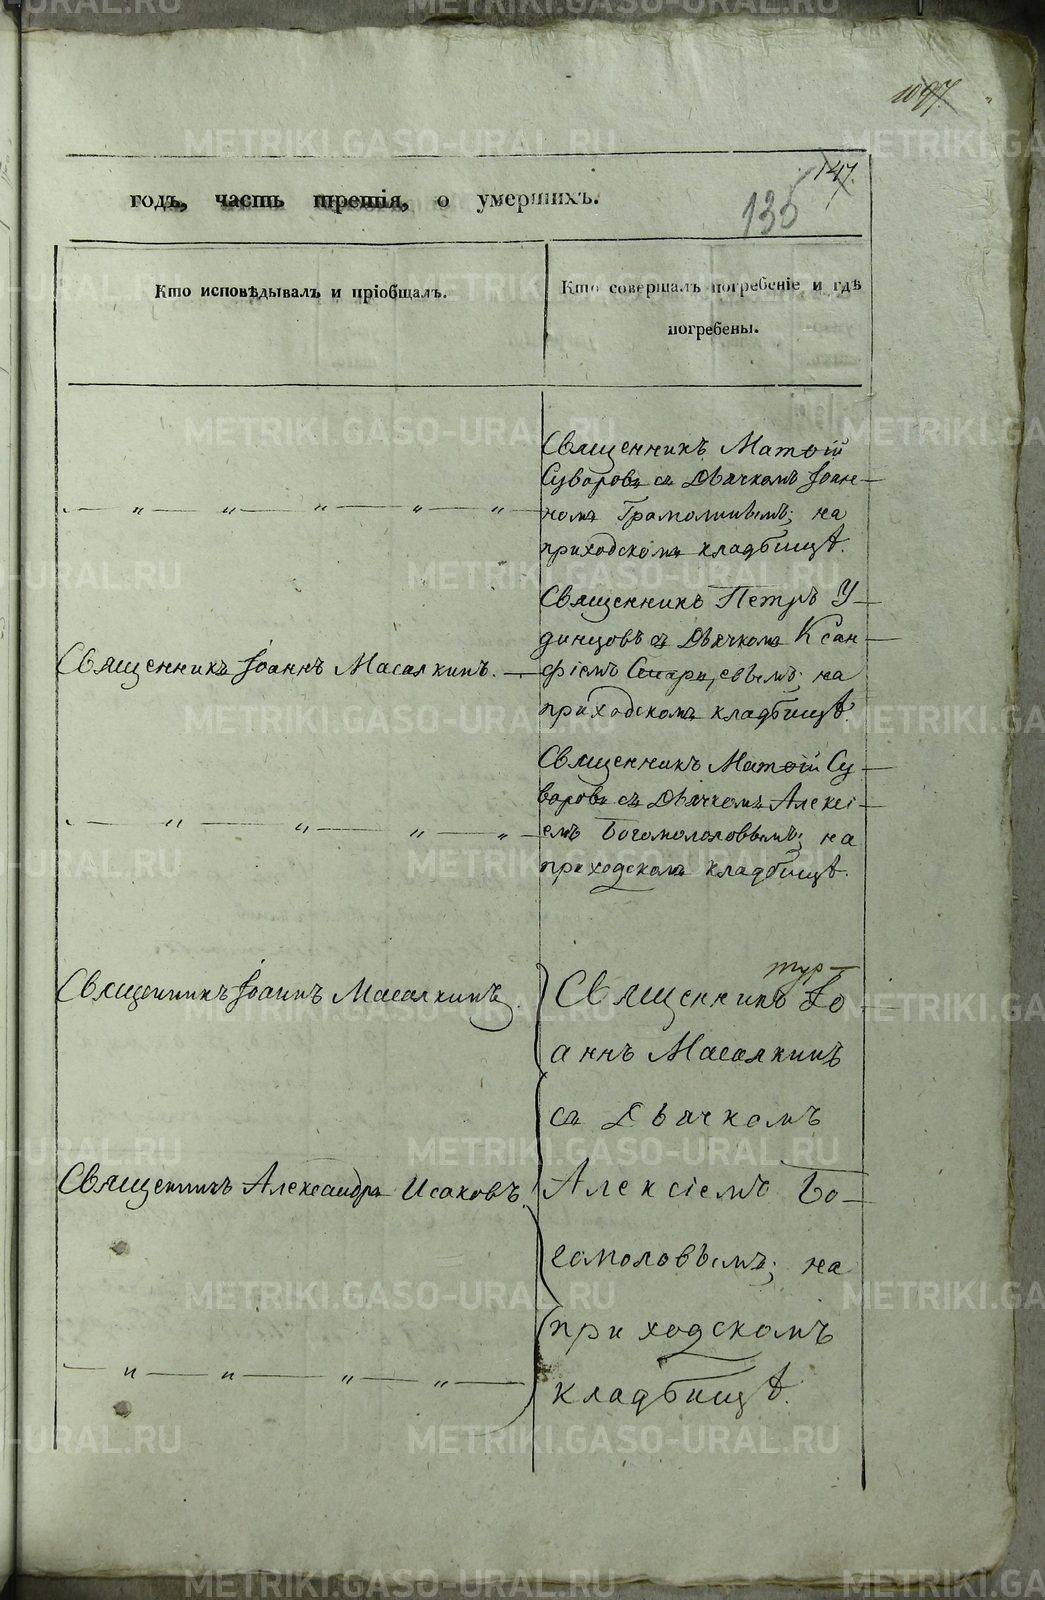 1097.
147.
135
годъ, часть третія, о умершихъ.
Кто исповѣдывалъ и пріобщалъ.
Кто совершалъ погребеніе и гдѣ
погребены.
Священникъ Матѳій
Суворовъ съ Дьячкомъ Іоан-
номъ Грамолинымъ; на
приходскомъ кладбищѣ.
Священникъ Іоаннъ Масалкинъ.
Священникъ Петръ У-
динцовъ съ Дьячкомъ Ксан-
фіемъ на
приходскомъ кладбищѣ.
Священникъ Матѳій Су-
воровъ съ Дьячкомъ Алексі-
емъ Богомоловымъ; на
приходскомъ кладбищѣ.
Священникъ Іоаннъ Масалкинъ.
Священникъ Іо-
аннъ Масалкинъ
съ Дьячкомъ
Священникъ Александръ Исаковъ.
Алексіемъ Бо-
гомоловымъ; на
приходскомъ
кладбищѣ.
METRIKI.GASO-URAL.RU